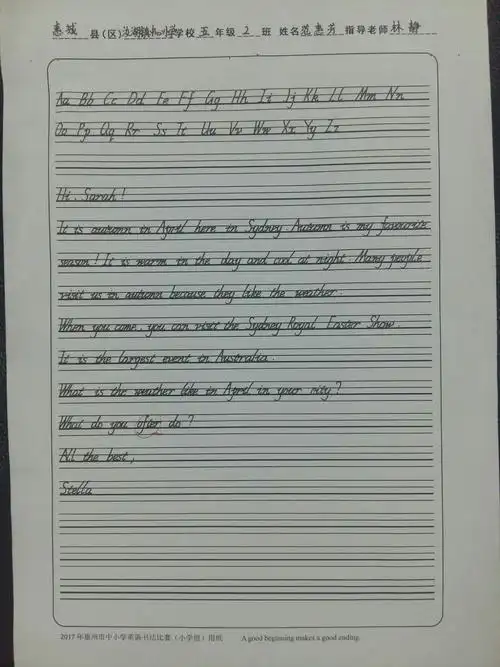 惠城 县(区) 学校 五 年级 2 班 姓名 范惠芳 指导老师 林静
Aa Bb Cc Dd Ee Ff Gg Hh Ii Jj Kk Ll Mm Nn
Oo Pp Qq Rr Ss Tt Uu Vv Ww Xx Yy Zz
Hi, Sarah!
It is autumn in April here in Sydney. Autumn is my favourite
season! It is warm in the day and cool at night. Many people
visit us in autumn because they like the weather.
When you come, you can visit the Sydney Royal Easter Show.
It is the largest event in Australia.
What is the weather like in April in your city?
What do you often do?
All the best,
Stella
2017年惠州市中小学英语书法比赛(小学组)用纸 A good beginning makes a good ending.